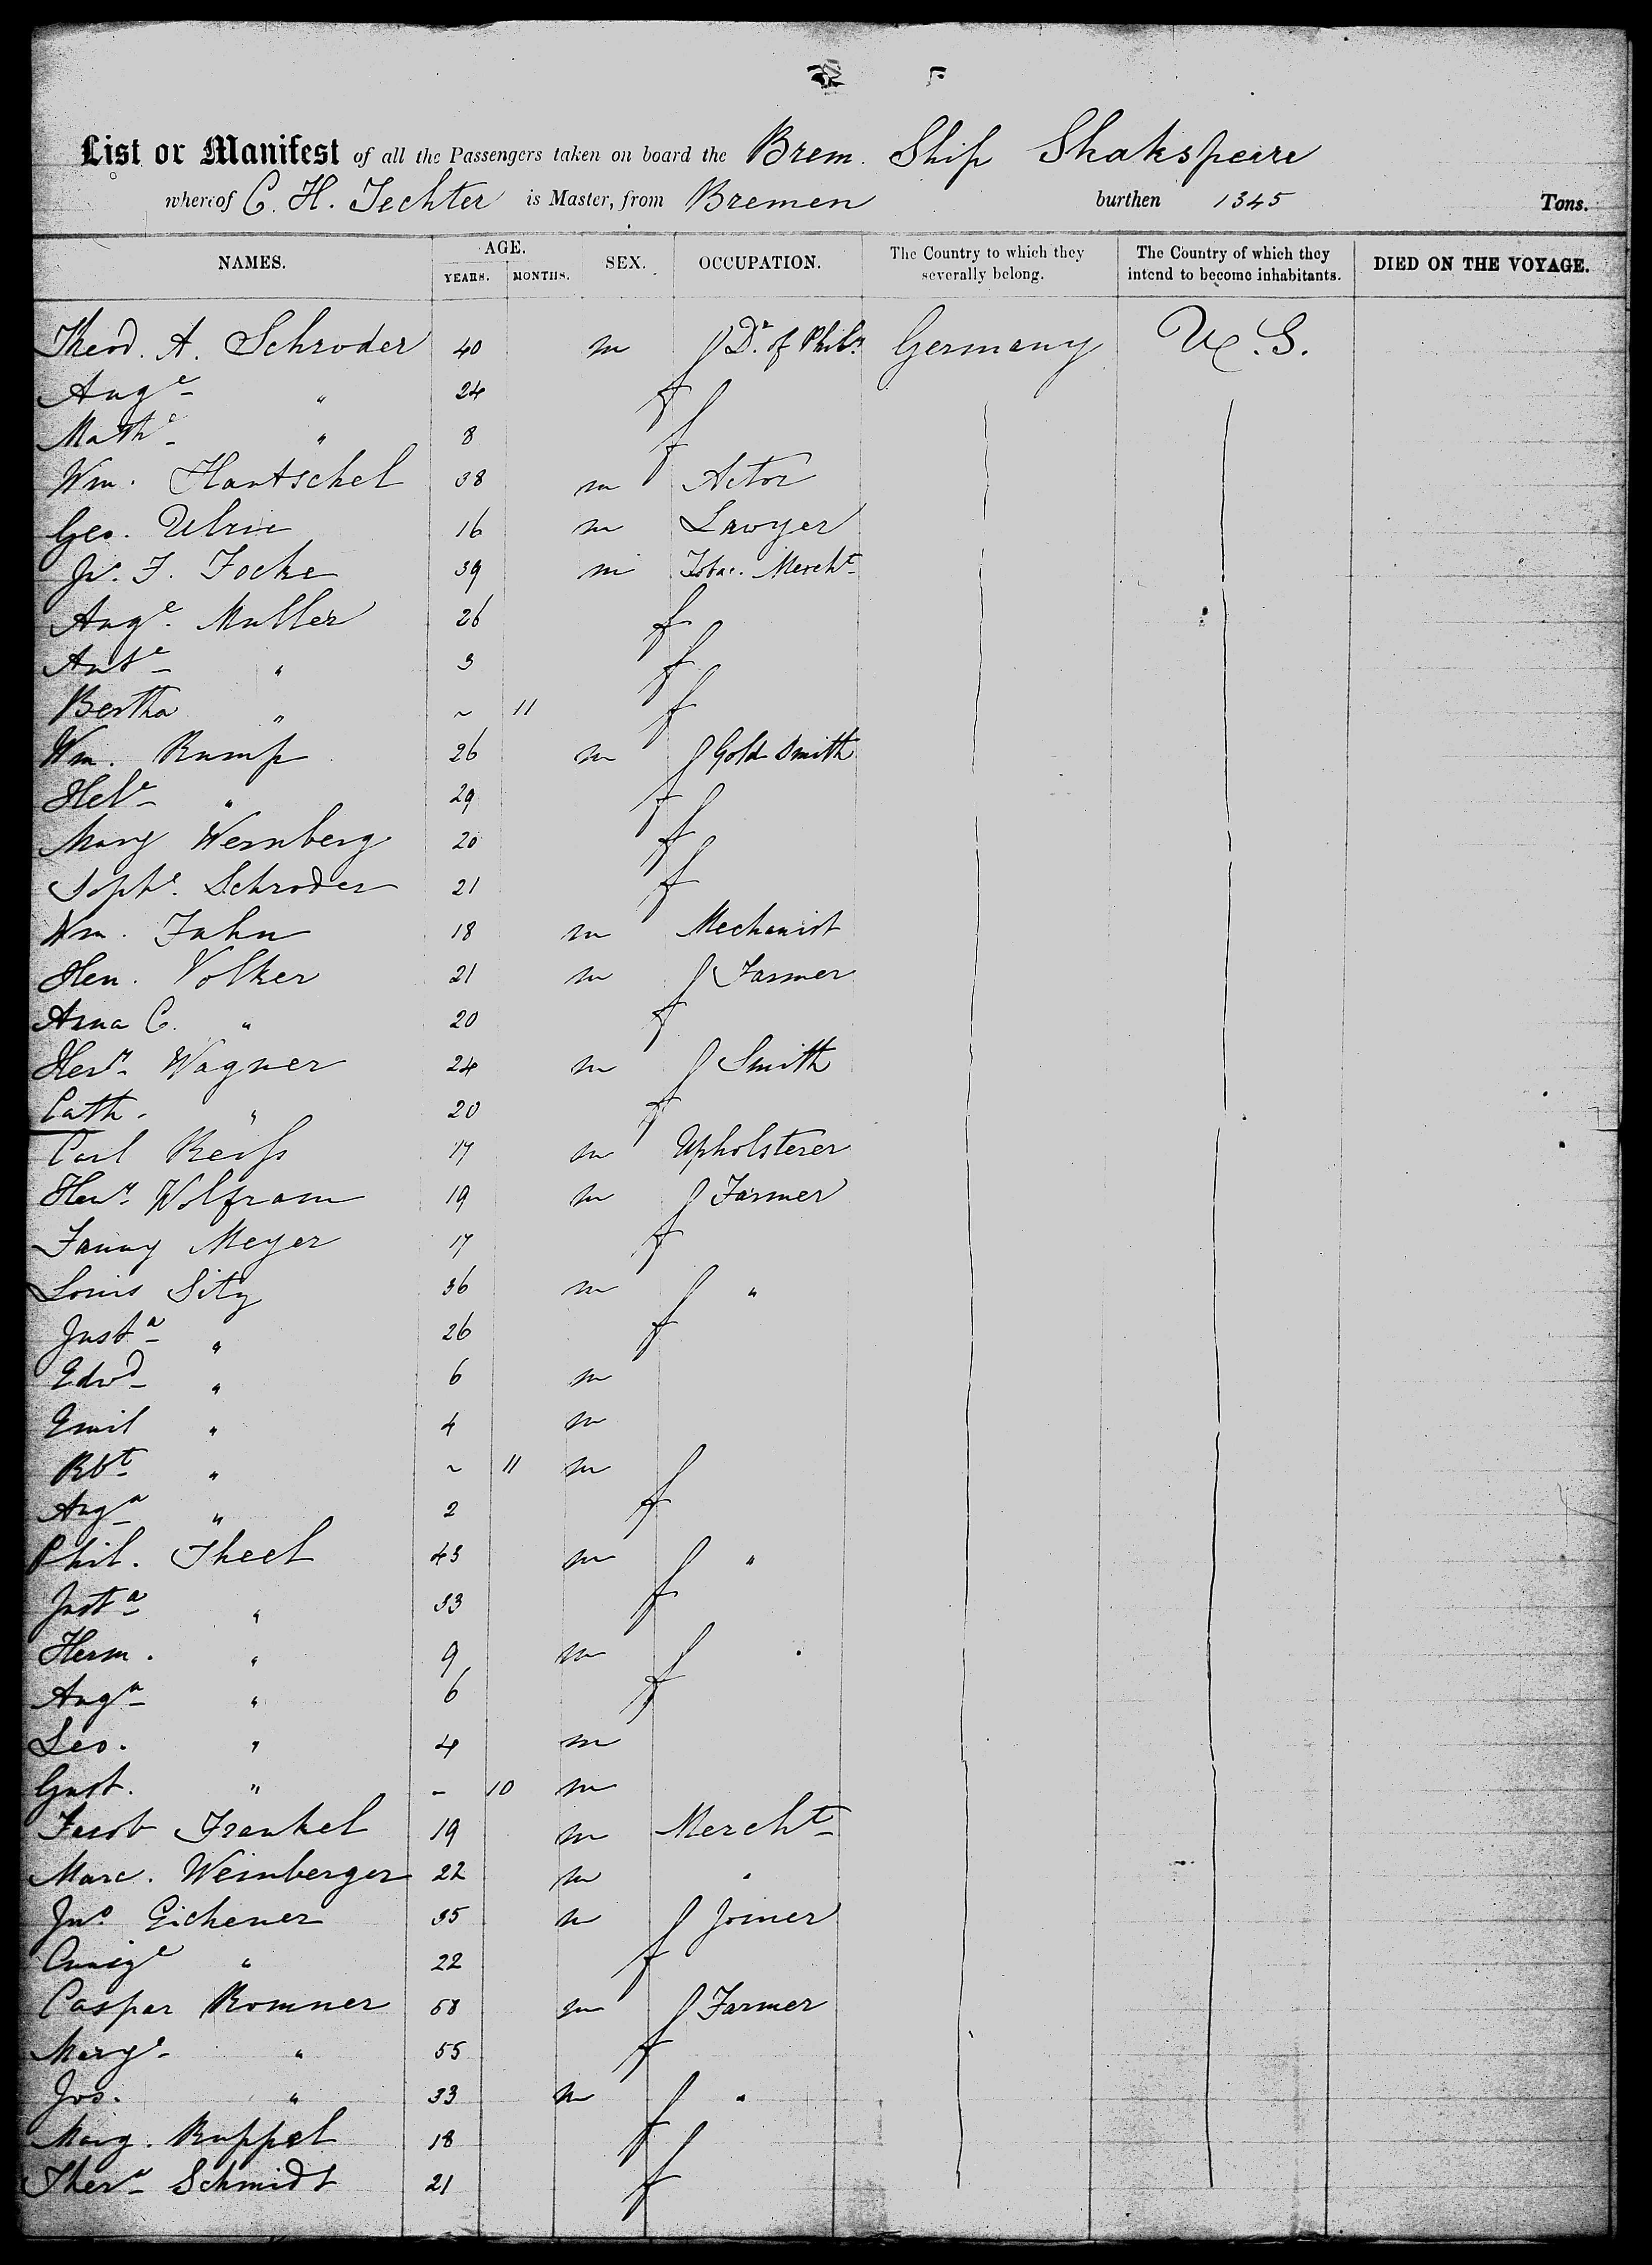 List or Manifest of all the Passengers taken on board the Brem. Ship Shakspeare
whereof C. H. Techter is Master, from Bremen burthen 1345 Tons.
NAMES. AGE. YEARS. MONTHS. SEX. OCCUPATION. The Country to which they severally belong. The Country of which they intend to become inhabitants. DIED ON THE VOYAGE.
Theod. A. Schroder 40 m Dr. of Philo. Germany U. S.
Auge " 24 f
Mathe " 8 f
Wm. Hantschel 38 m Actor
Geo. Ulric 16 m Lawyer
Jno. F. Focke 39 m Tobac. Mercht
Auge. Muller 26 f
Ante " 3 f
Bertha " ~ 11 f
Wm. Rump 26 m Gold Smith
Hele " 29 f
Mary Wernberg 20 f
Sophe. Schroder 21 f
Wm. Jahn 18 m Mechanist
Hen. Volker 21 m Farmer
Anna C. " 20 f
Herm Wagner 24 m Smith
Cath. " 20 f
Carl Reifs 17 m Upholsterer
Heny Wolfram 19 m Farmer
Fanny Meyer 17 f
Louis Sitz 36 m "
Justa " 26 f
Edwd " 6 m
Emil " 4 m
Rbt " ~ 11 m
Auga " 2 f
Phil. Theel 43 m "
Justa " 33 f
Herm. " 9 m
Auga " 6 f
Leo. " 4 m
Gust. " - 10 m
Jacob Frankel 19 m Mercht
Marc. Weinberger 22 m "
Jno Eichener 35 m Joiner
Cunige " 22 f
Caspar Romner 58 m Farmer
Marge " 55 f
Jos. " 33 m "
Marg. Ruppel 18 f
Thera Schmidt 21 f